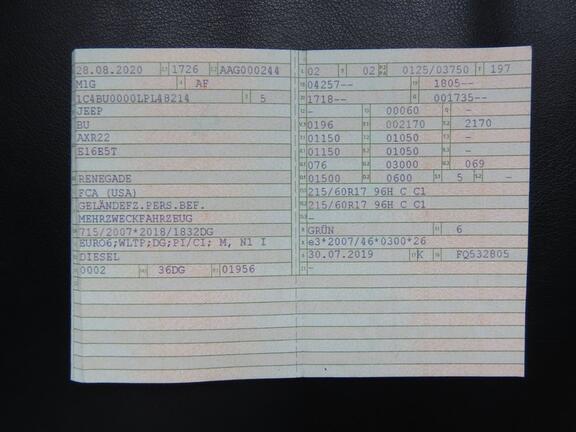 28.08.2020 1726 AAG000244
M1G AF
1C4BU0000LPL48214 5
JEEP
BU
AXR22
E16E5T
RENEGADE
FCA (USA)
GELÄNDEFZ.PERS.BEF.
MEHRZWECKFAHRZEUG
715/2007*2018/1832DG
EURO6;WLTP;DG;PI/CI; M, N1 I
DIESEL
0002 36DG 01956
02 02 0125/03750 197
04257-- 1805--
1718-- 001735--
- 00060 -
0196 002170 2170
01150 01050 -
01150 01050 -
076 03000 069
01500 0600 5 -
215/60R17 96H C C1
215/60R17 96H C C1
-
GRÜN 6
e3*2007/46*0300*26
30.07.2019 K FQ532805
-